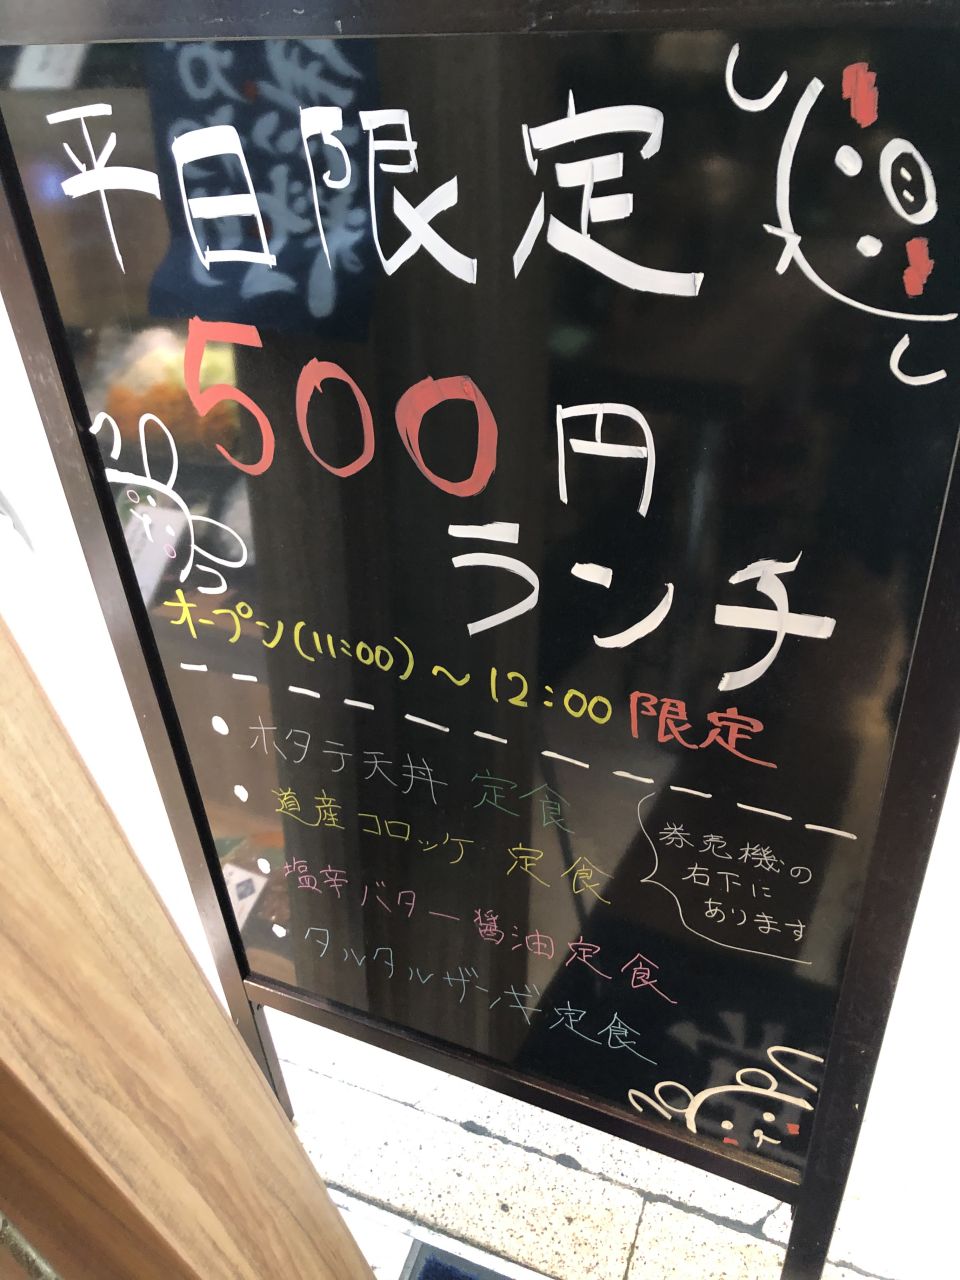 平日限定
500円
ランチ
オープン(11:00)～12:00限定
・ホタテ天丼 定食
・道産コロッケ 定食
・塩辛バター醤油定食
・タルタルザンギ定食
券売機の
右下に
あります